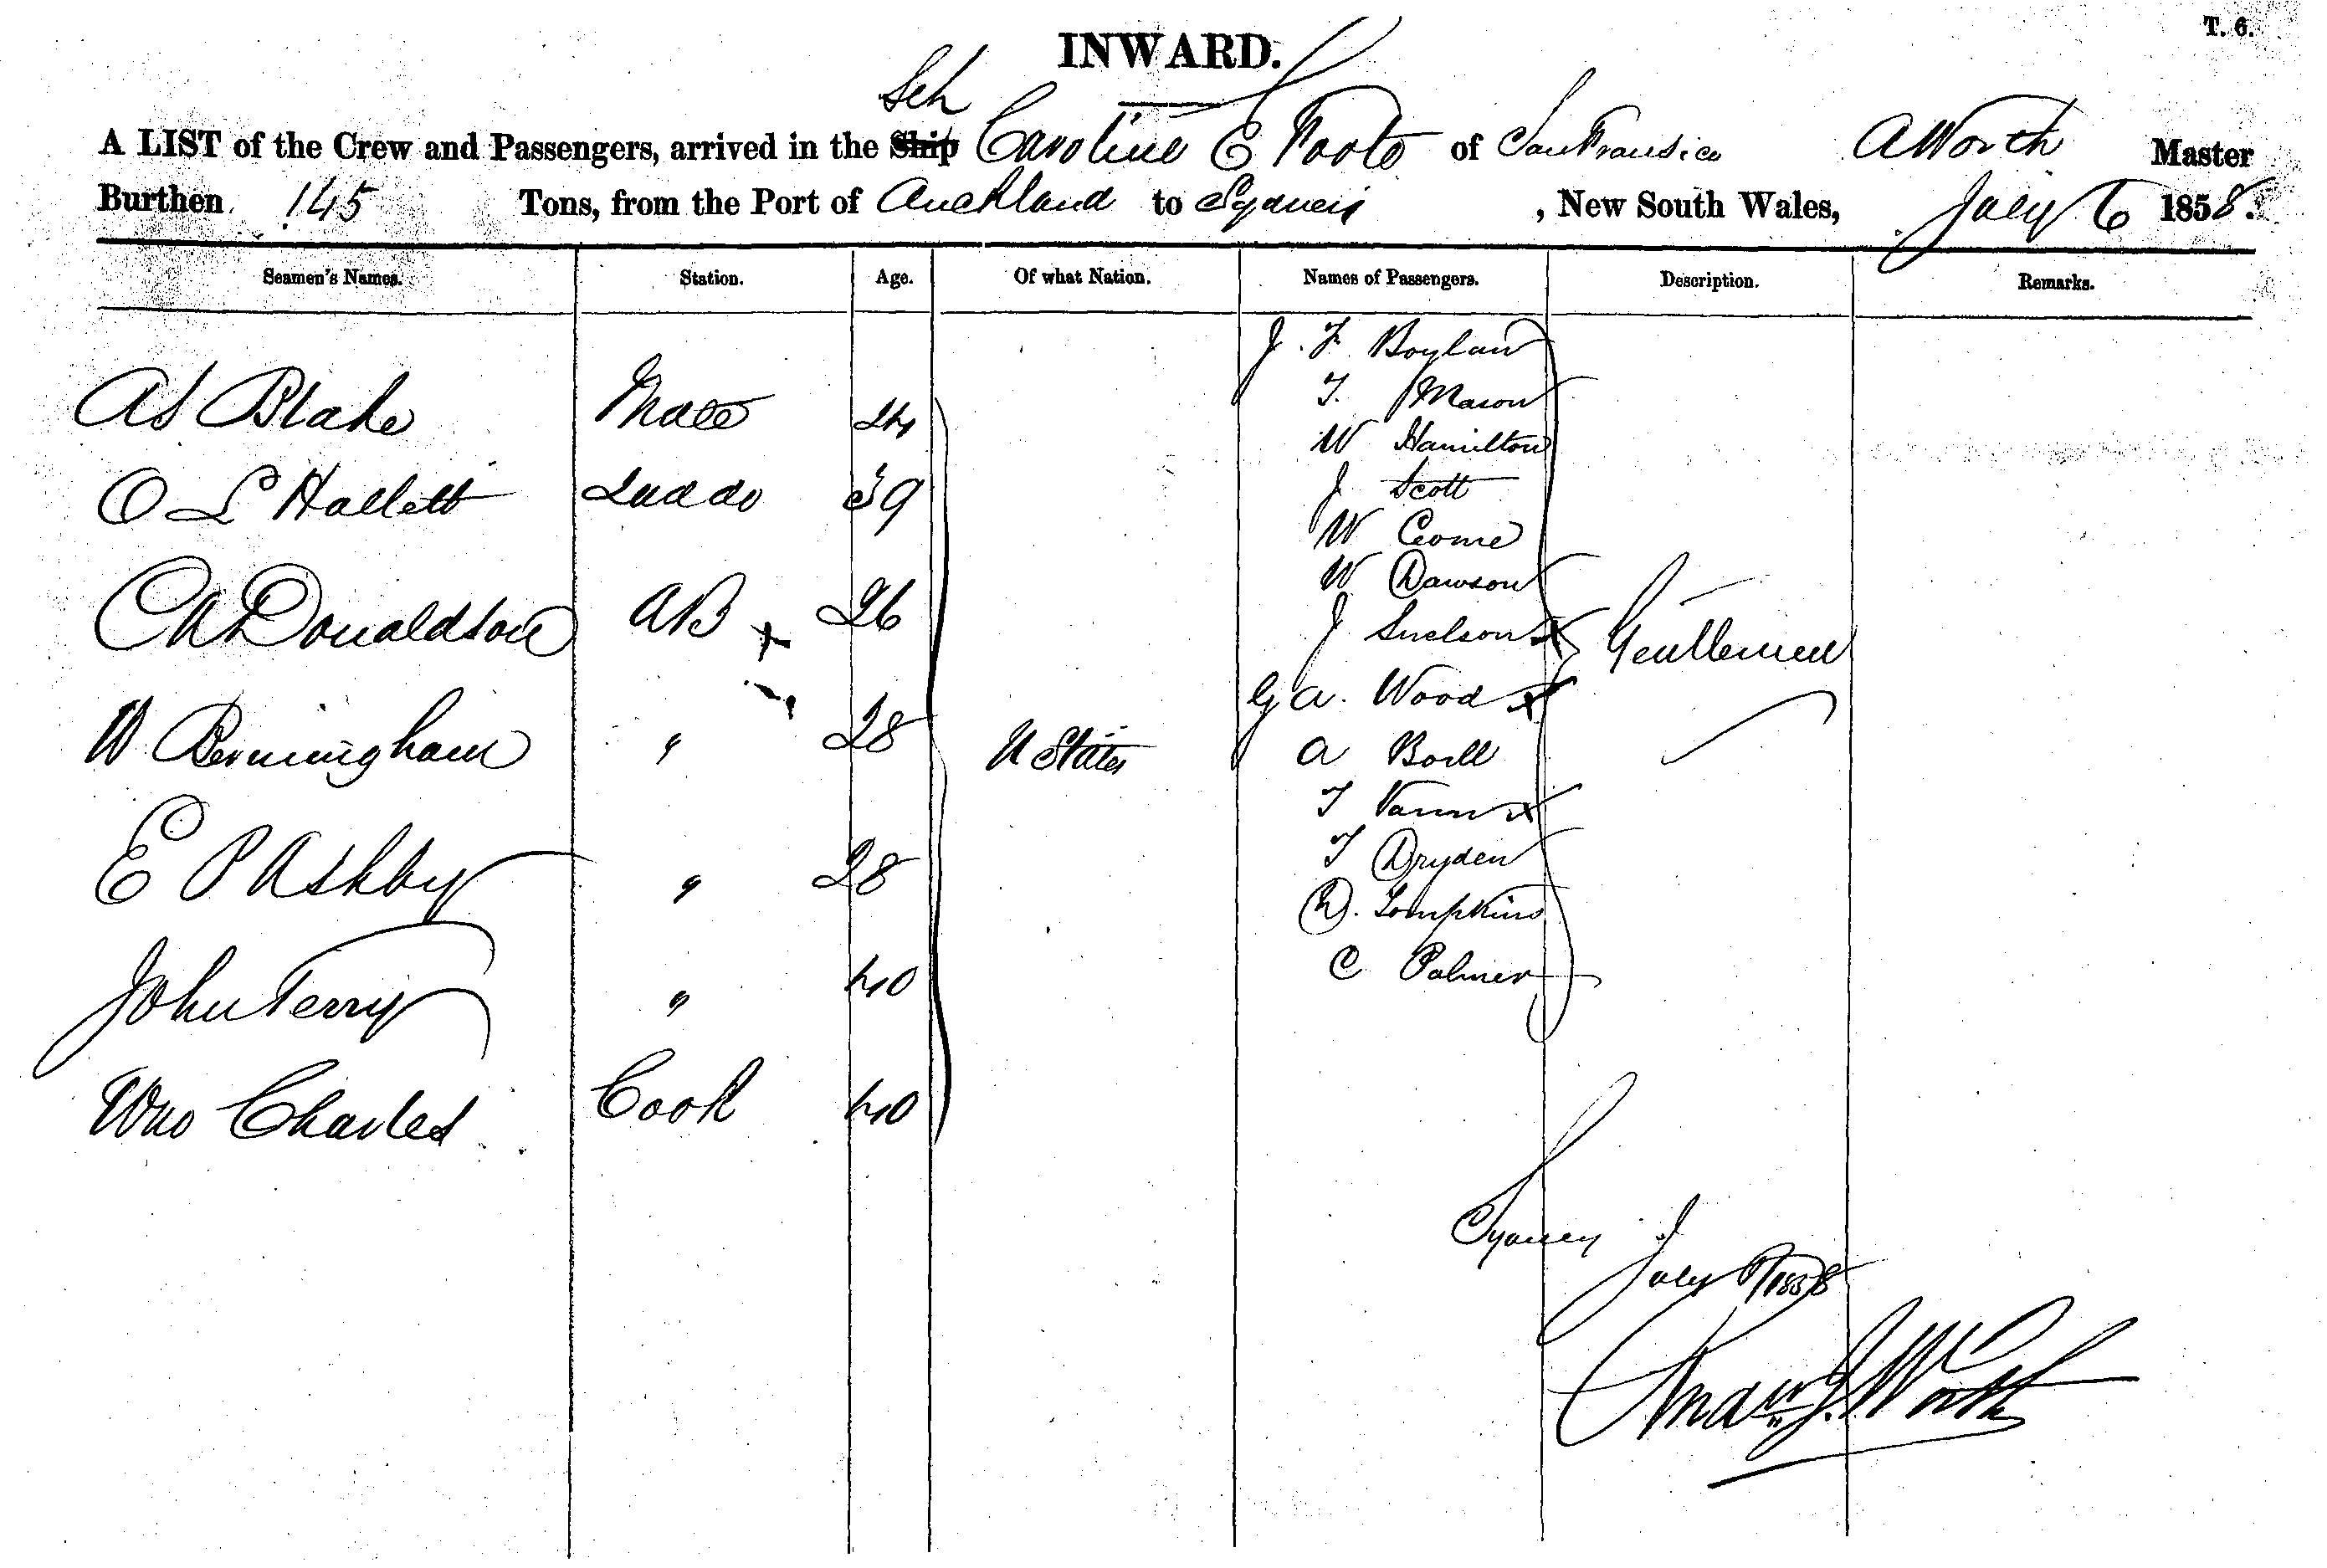 T. 6.
INWARD.
Sch
A LIST of the Crew and Passengers, arrived in the Ship Caroline E Foote of San Fransico A Worth Master
Burthen 145 Tons, from the Port of Auckland to Sydney , New South Wales, July 6 1858.
Seamen's Names. Station. Age. Of what Nation. Names of Passengers. Description. Remarks.
J. F. Boylan
T. Mason
AS Blake Mate 24
W Hamilton
O L Hallett 2nd do 39
J Scott
W
W Dawson
C A Donaldson AB 26
J Snelson x Gentlemen
G A. Wood x
W Bermingham " 28 U States
A Boell
T x
T Dryden
E P Ashby " 28
D. Tompkins
C Palmer
John Terry " 40
Wm Charles Cook 40
Sydney
July 6/1858
Andw J. Worth